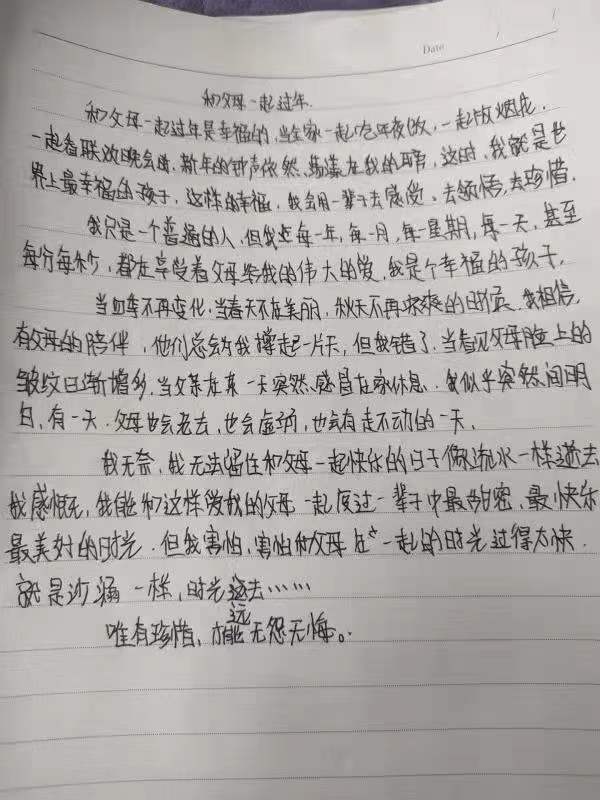 Date
和父母一起过年.
和父母一起过年是幸福的,当全家一起吃年夜饭,一起放烟花.
一起看联欢晚会时,新年的钟声依然荡漾在我的耳旁,这时,我就是世
界上最幸福的孩子,这样的幸福.我会用一辈子去感受、去领悟,去珍惜.
我只是一个普通的人,但我在每一年,每一月,每一星期,每一天,甚至
每分每秒,都在享受着父母给我的伟大的爱.我是个幸福的孩子,
当四季不再变化.当春天不在美丽,秋天不再凉爽的时候.我相信,
有父母的陪伴,他们总会为我撑起一片天,但我错了.当看见父母脸上的
皱纹日渐增多,当父亲在某一天突然感冒在家休息.我似乎突然间明
白,有一天.父母也会老去,也会虚弱,也会有走不动的一天、
我无奈,我无法留住和父母一起快乐的日子像流水一样逝去
我感慨,我能和这样爱我的父母一起度过一辈子中最甜密、最快乐
最美好的时光.但我害怕,害怕和父母在一起的时光过得太快.
就是沙漏一样,时光远去……
远
唯有珍惜、才能无怨无悔。